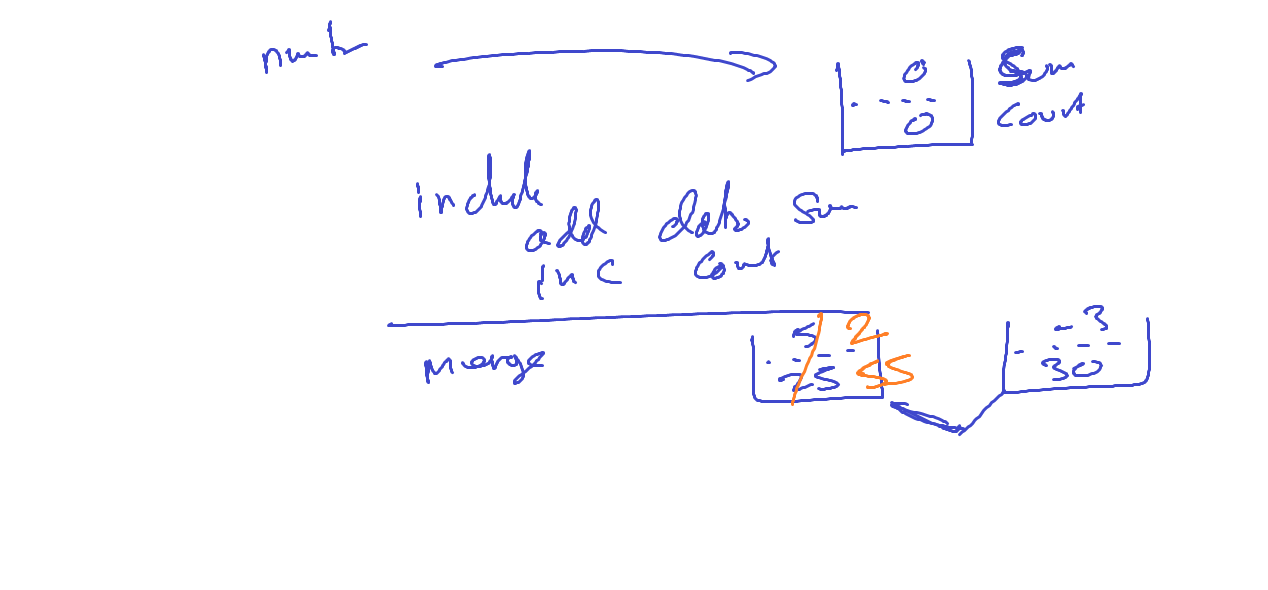 number
0 Sum
0 Count
include
add data sum
inc count
merge
5 2 -3
25 55 30